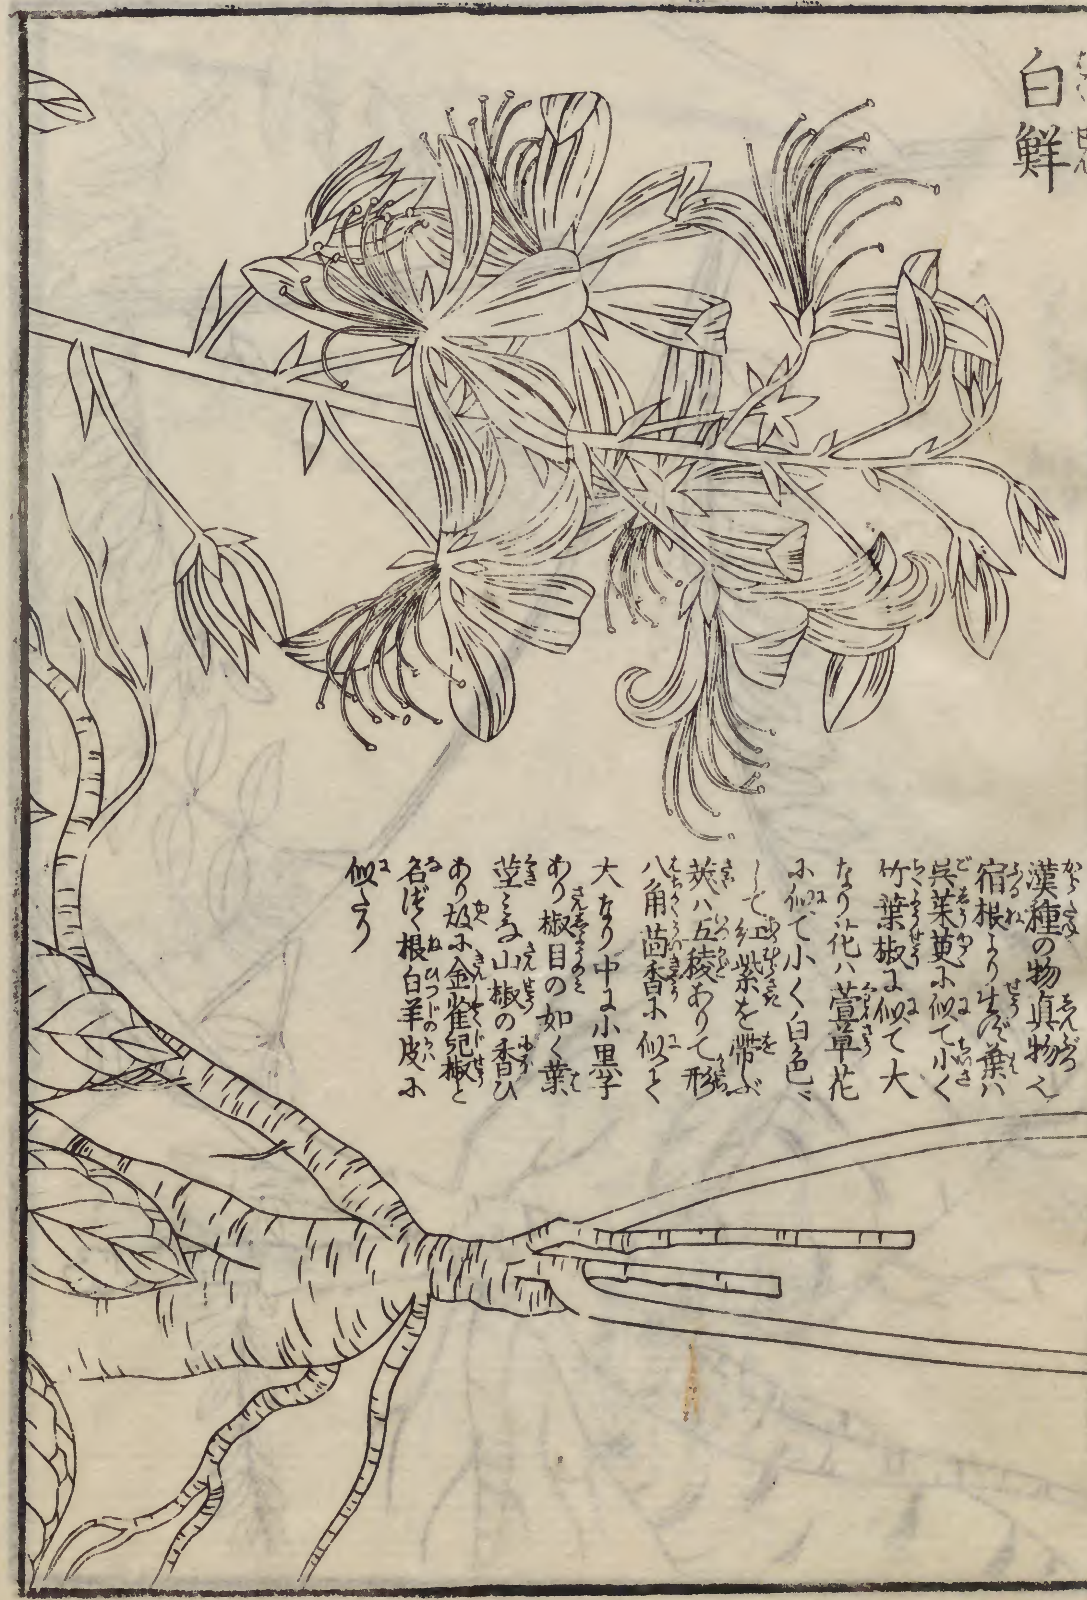 白鮮
漢種の物真物え
宿根より生ず葉ハ
呉茱萸に似て小く
竹葉椒に似て大
なり花ハ萱草花
に似て小く白色ニ
して紅紫を帶ぶ
莢ハ五稜ありて形
八角茴香に似て
大なり中に小黒子
あり椒目の如く葉
莖ともに山椒の香ひ
あり故に金雀児椒と
名づく根白羊皮に
似たり